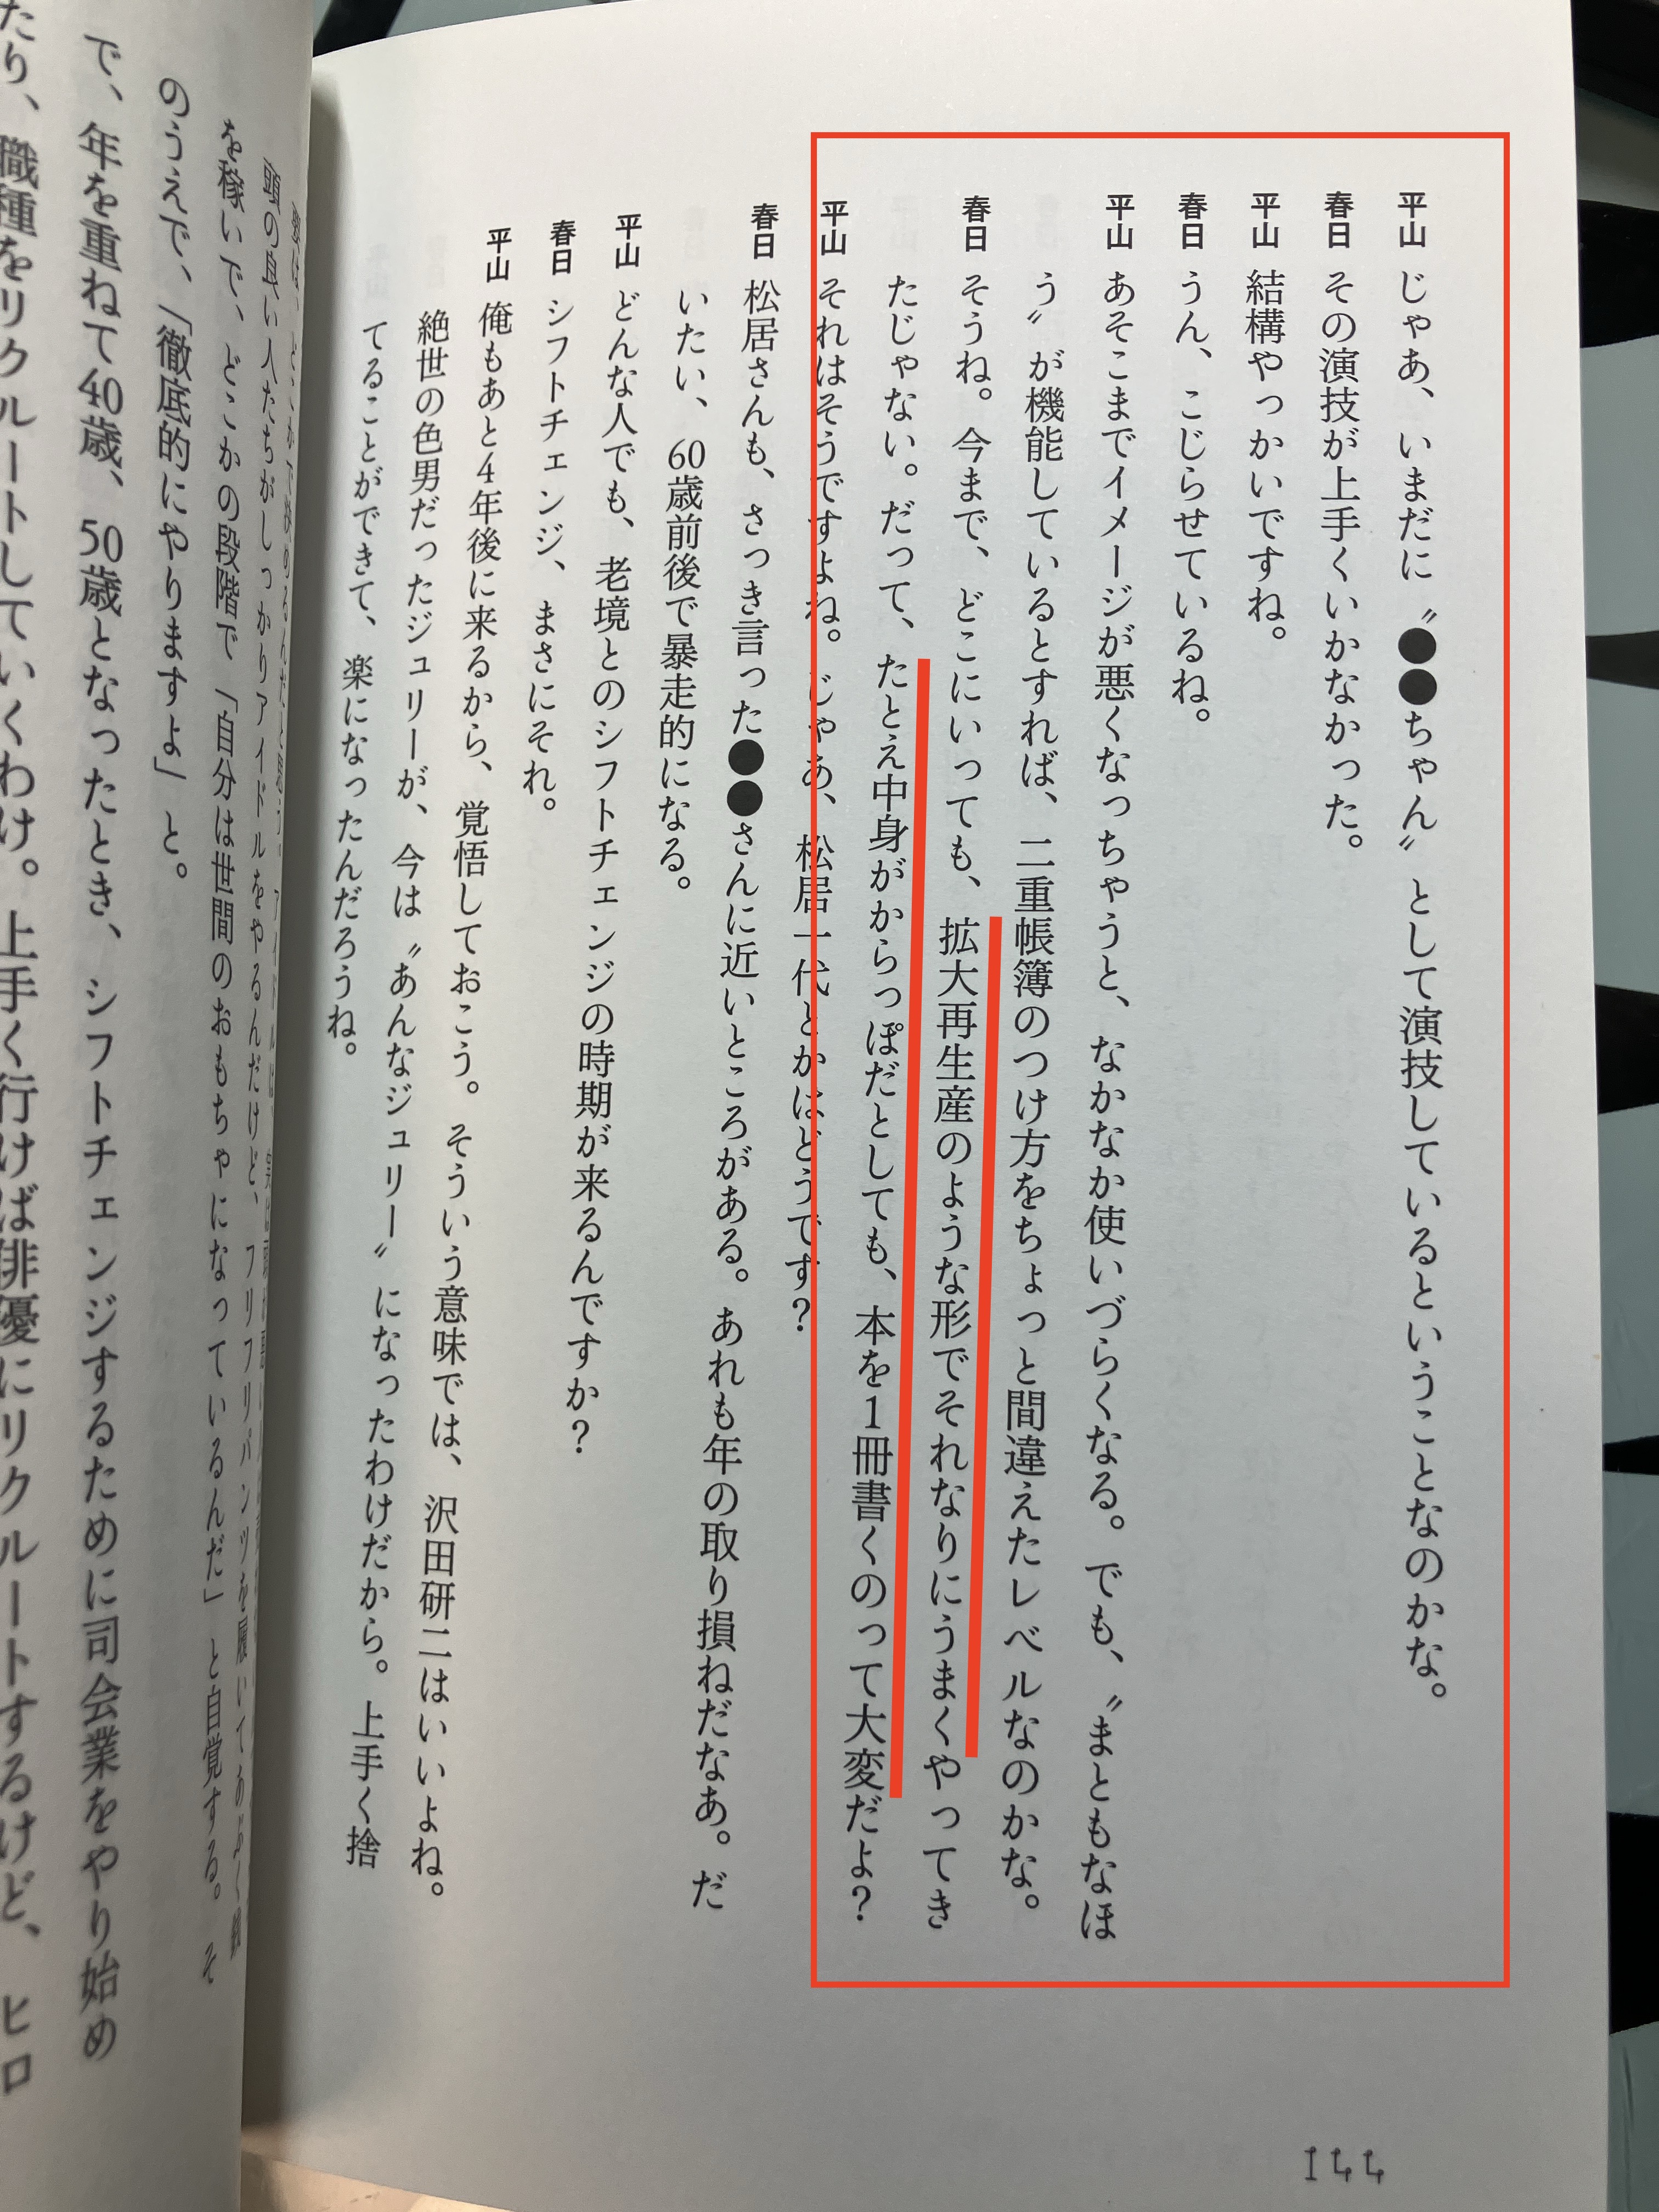 平山 じゃあ、いまだに〝●●ちゃん〟として演技しているということなのかな。
春日 その演技が上手くいかなかった。
平山 結構やっかいですね。
春日 うん、こじらせているね。
平山 あそこまでイメージが悪くなっちゃうと、なかなか使いづらくなる。でも、〝まともなほ
う〟が機能しているとすれば、二重帳簿のつけ方をちょっと間違えたレベルなのかな。
春日 そうね。今まで、どこにいっても、拡大再生産のような形でそれなりにうまくやってき
たじゃない。だって、たとえ中身がからっぽだとしても、本を1冊書くのって大変だよ?
平山 それはそうですよね。じゃあ、松居一代とかはどうです?
春日 松居さんも、さっき言った●●さんに近いところがある。あれも年の取り損ねだなあ。だ
いたい、60歳前後で暴走的になる。
平山 どんな人でも、老境とのシフトチェンジの時期が来るんですか?
春日 シフトチェンジ、まさにそれ。
平山 俺もあと4年後に来るから、覚悟しておこう。そういう意味では、沢田研二はいいよね。
絶世の色男だったジュリーが、今は〝あんなジュリー〟になったわけだから。上手く捨
てることができて、楽になったんだろうね。
144
頭の良い人たちがしっかりアイドルをやるんだけど、フリフリパンツを履いて
を稼いで、どこかの段階で「自分は世間のおもちゃになっているんだ」と自覚する。そ
のうえで、「徹底的にやりますよ」と。
で、年を重ねて40歳、50歳となったとき、シフトチェンジするために司会業をやり始め
たり、職種をリクルートしていくわけ。上手く行けば俳優にリクルートするけど、ヒロ